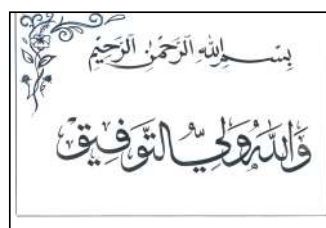 بِسْمِ اللهِ الرَّحْمٰنِ الرَّحِيْمِ
وَاللهُ وَلِيُّ التَّوْفِيْق